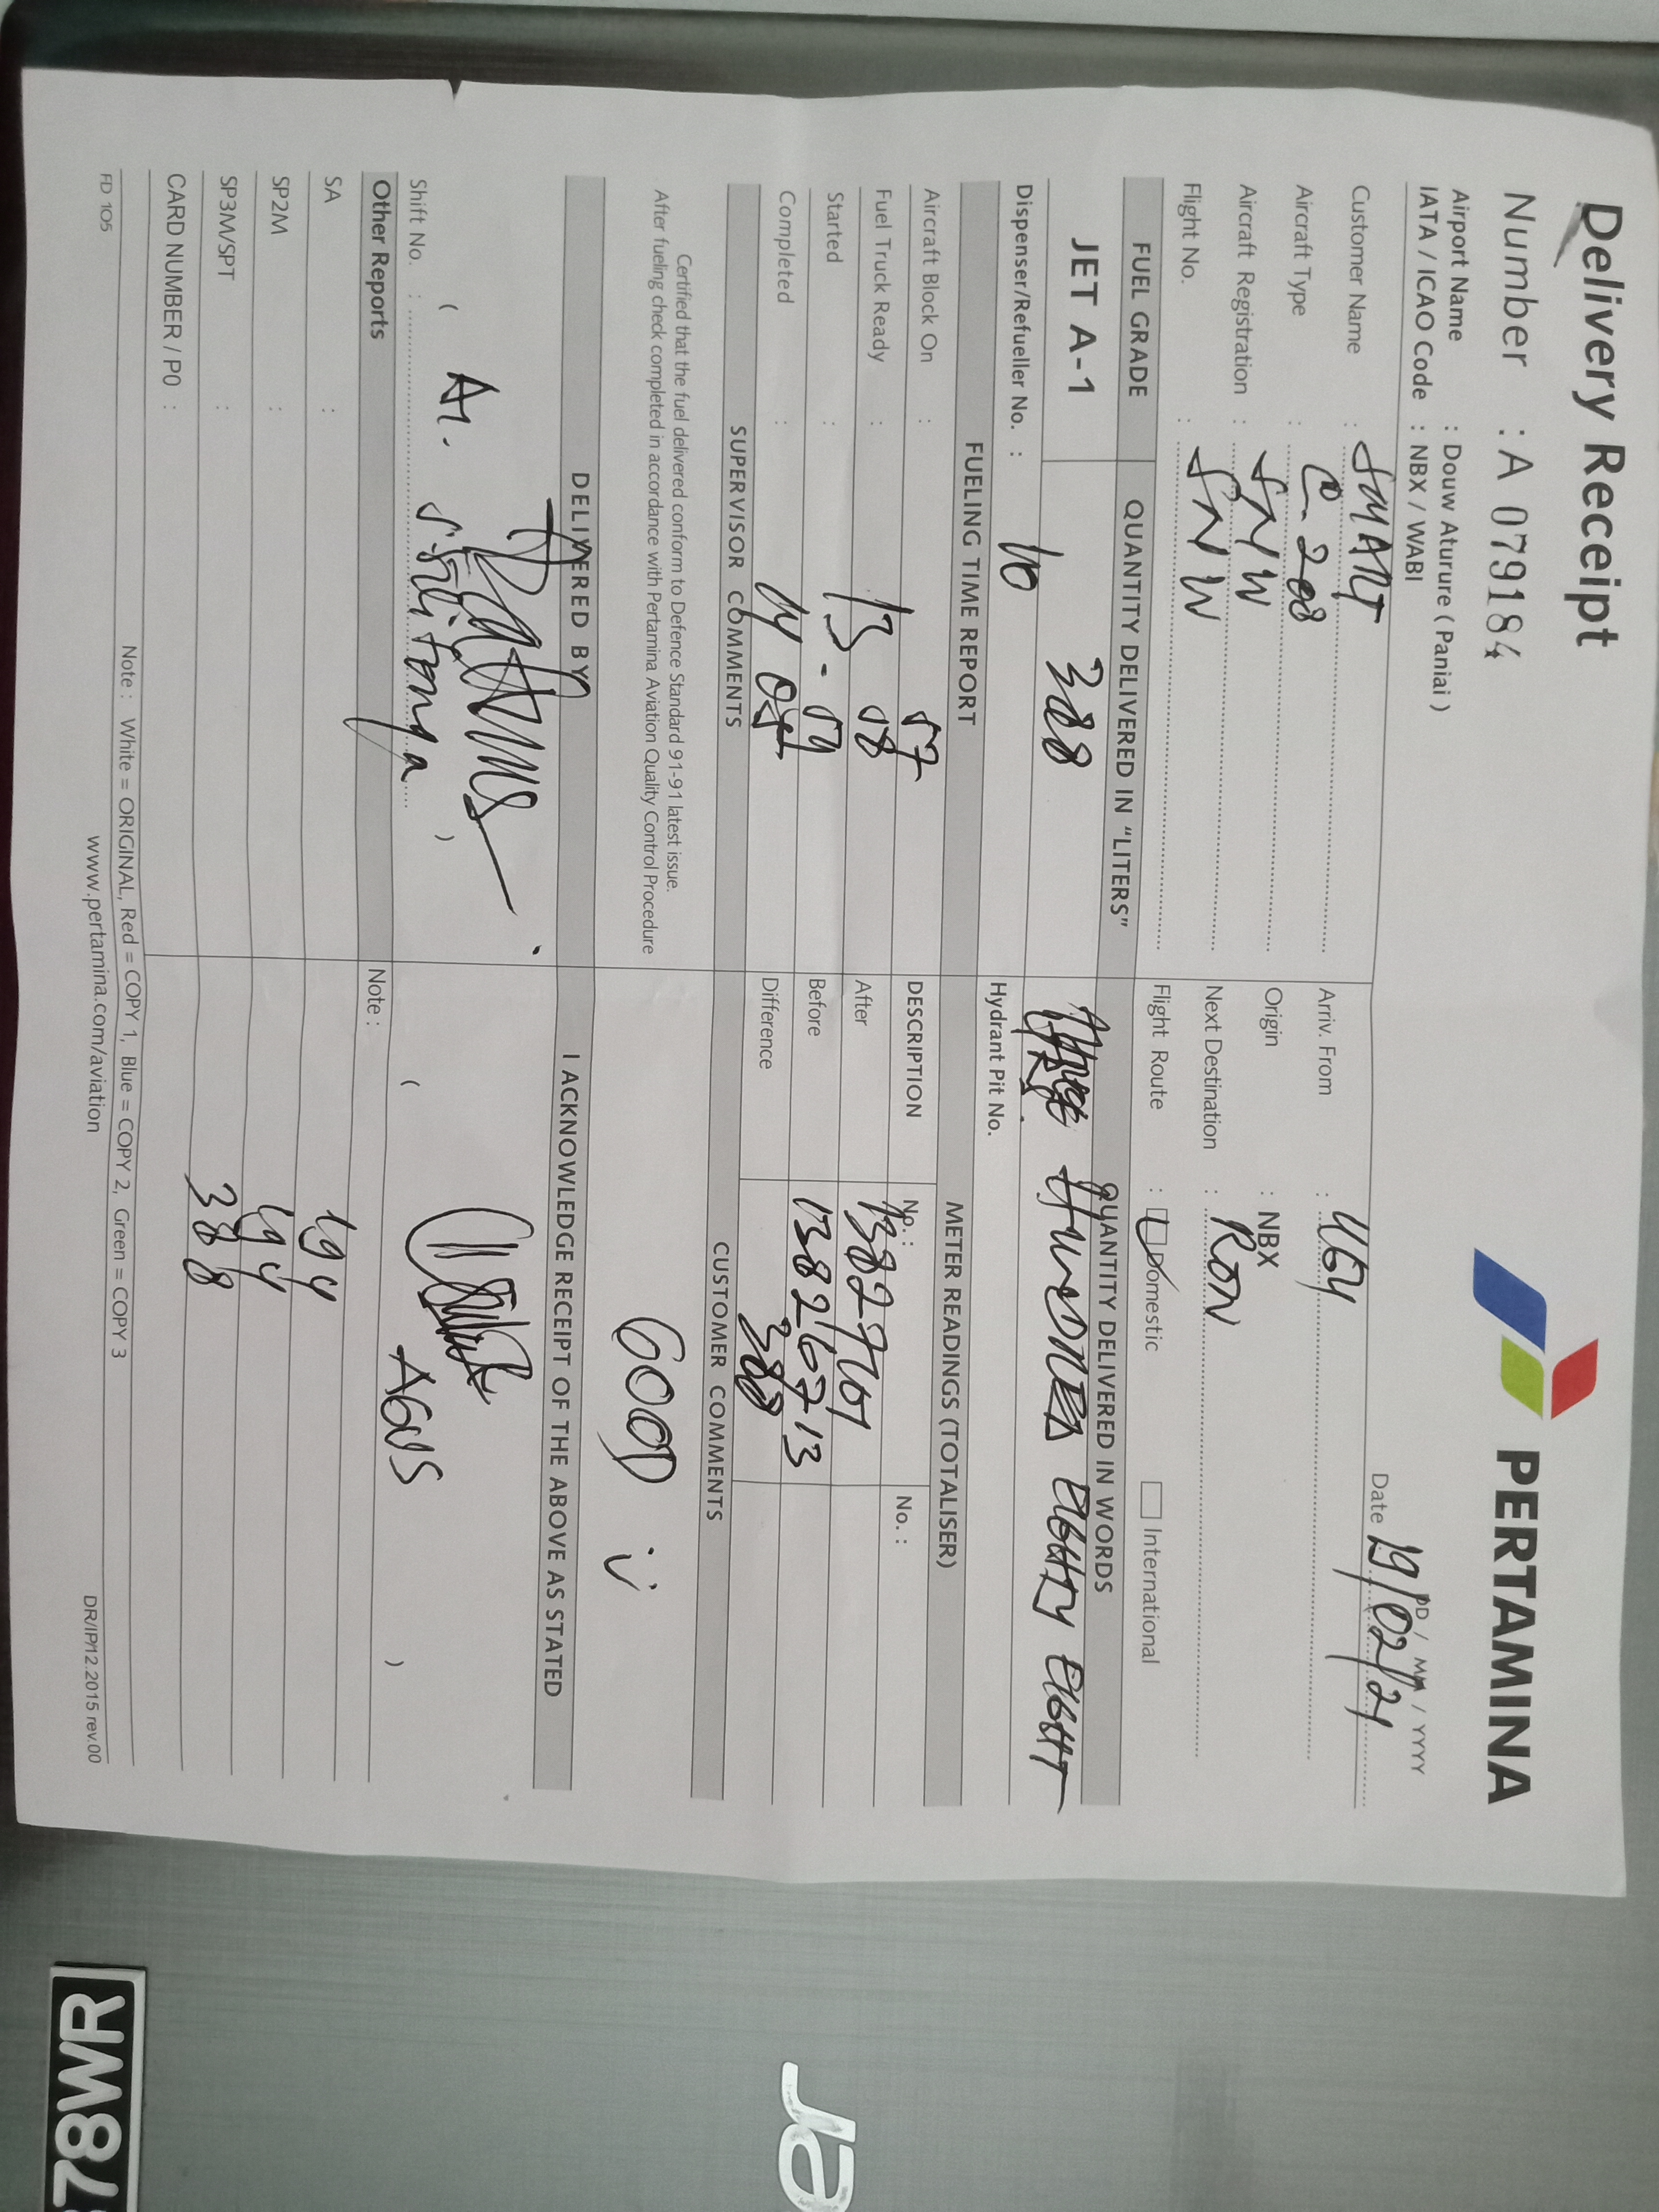 Delivery Receipt
PERTAMINA
Number : A 079184
Airport Name : Douw Aturure ( Paniai )
IATA / ICAO Code : NBX / WABI
DD / MM / YYYY
Date 19/02/21
Customer Name : SMART
Arriv. From : UGY
Aircraft Type : C 208
Origin : NBX
Aircraft Registration : SNW
Next Destination : RON
Flight No. : SNW
Flight Route : Domestic International
FUEL GRADE
QUANTITY DELIVERED IN "LITERS"
QUANTITY DELIVERED IN WORDS
JET A-1
388
HUNDRED EIGHTY EIGHT
Dispenser/Refueller No. : 110
Hydrant Pit No.
FUELING TIME REPORT
METER READINGS (TOTALISER)
Aircraft Block On : 57
DESCRIPTION No. : No. :
Fuel Truck Ready : 58
After 13827101
Started : 13 - 59
Before 13826713
Completed : 14
Difference 388
SUPERVISOR COMMENTS
CUSTOMER COMMENTS
Certified that the fuel delivered conform to Defence Standard 91-91 latest issue.
After fueling check completed in accordance with Pertamina Aviation Quality Control Procedure
GOOD
DELIVERED BY
I ACKNOWLEDGE RECEIPT OF THE ABOVE AS STATED
AGUS
Shift No. :
Other Reports
Note :
SA : 194
SP2M : 194
SP3M/SPT : 388
CARD NUMBER / P0 :
Note : White = ORIGINAL, Red = COPY 1, Blue = COPY 2, Green = COPY 3
FD 105
www.pertamina.com/aviation
DR/IP/12.2015 rev.00
78WR